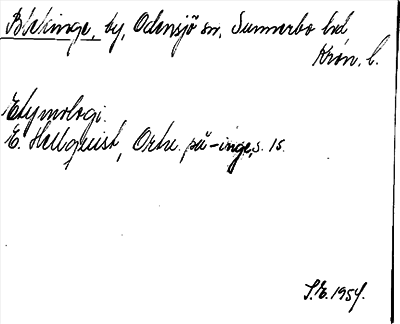 Blekinge, by, Odensjö sn, Sunnerbo hd
Kron. l.
Etymologi.
E. Hellquist, Ortn. på -inge, s. 15.
S.E. 1954.